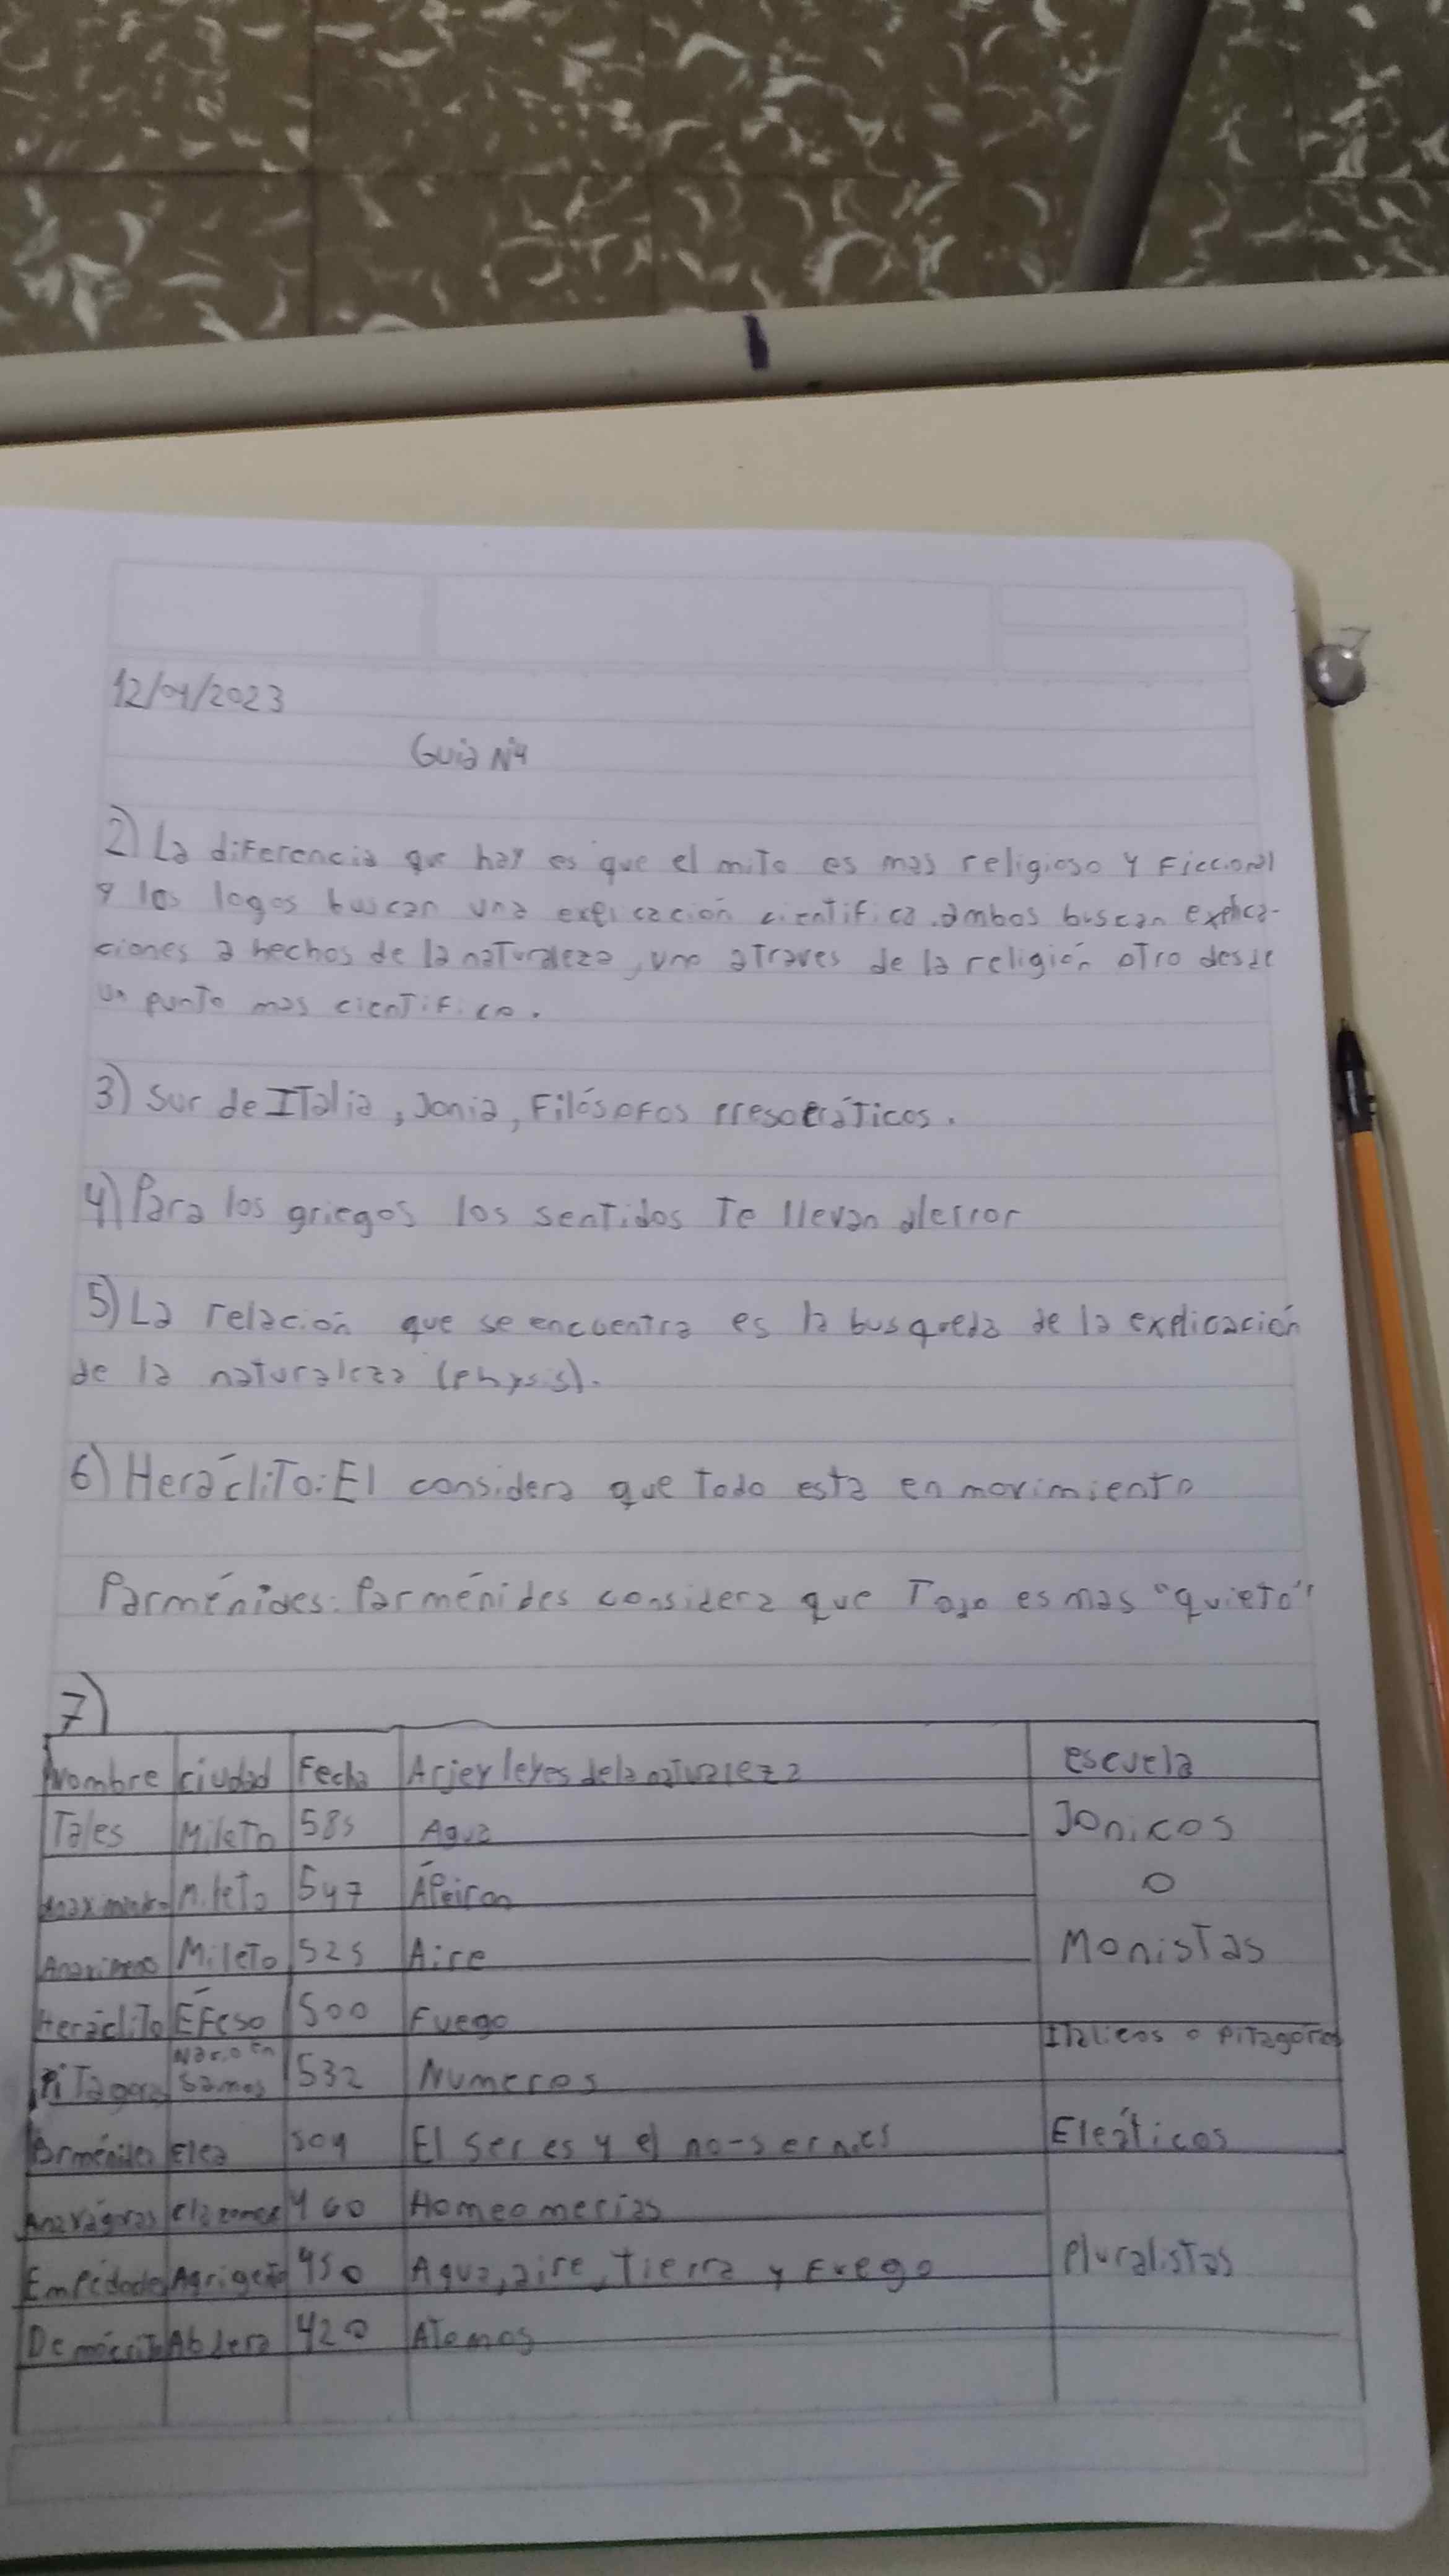 12/04/2023
Guia N°4
2) La diferencia que hay es que el mito es mas religioso y Ficcional
y los logos buscan una explicación cientifica. ambos buscan explica-
ciones a hechos de la naturaleza, uno atraves de la religión otro desde
un punto mas cientifico.
3) Sur de Italia, Jonia, Filósofos presocráticos.
4) Para los griegos los sentidos te llevan alerror
5) La relación que se encuentra es la busqueda de la explicación
de la naturaleza (physis).
6) Heráclito: El considera que todo esta en movimiento
Parménides: Parménides considera que Todo es mas "quieto"
7)
Nombre ciudad Fecha Arjey leyes de la naturaleza escuela
Tales Mileto 585 Agua Jonicos
Anaximandro Mileto 547 Ápeiron o
Mileto 525 Aire Monistas
Heráclito Éfeso 500 Fuego
Nacio en Italicos o
Pitagoras Samos 532 Numeros
Parménides Elea 504 El ser es y el no-ser no es Eleáticos
Anaxágoras 460 Homeomerias
450 Agua, aire, tierra y Fuego Pluralistas
Demócrito Abdera 420 Atomos